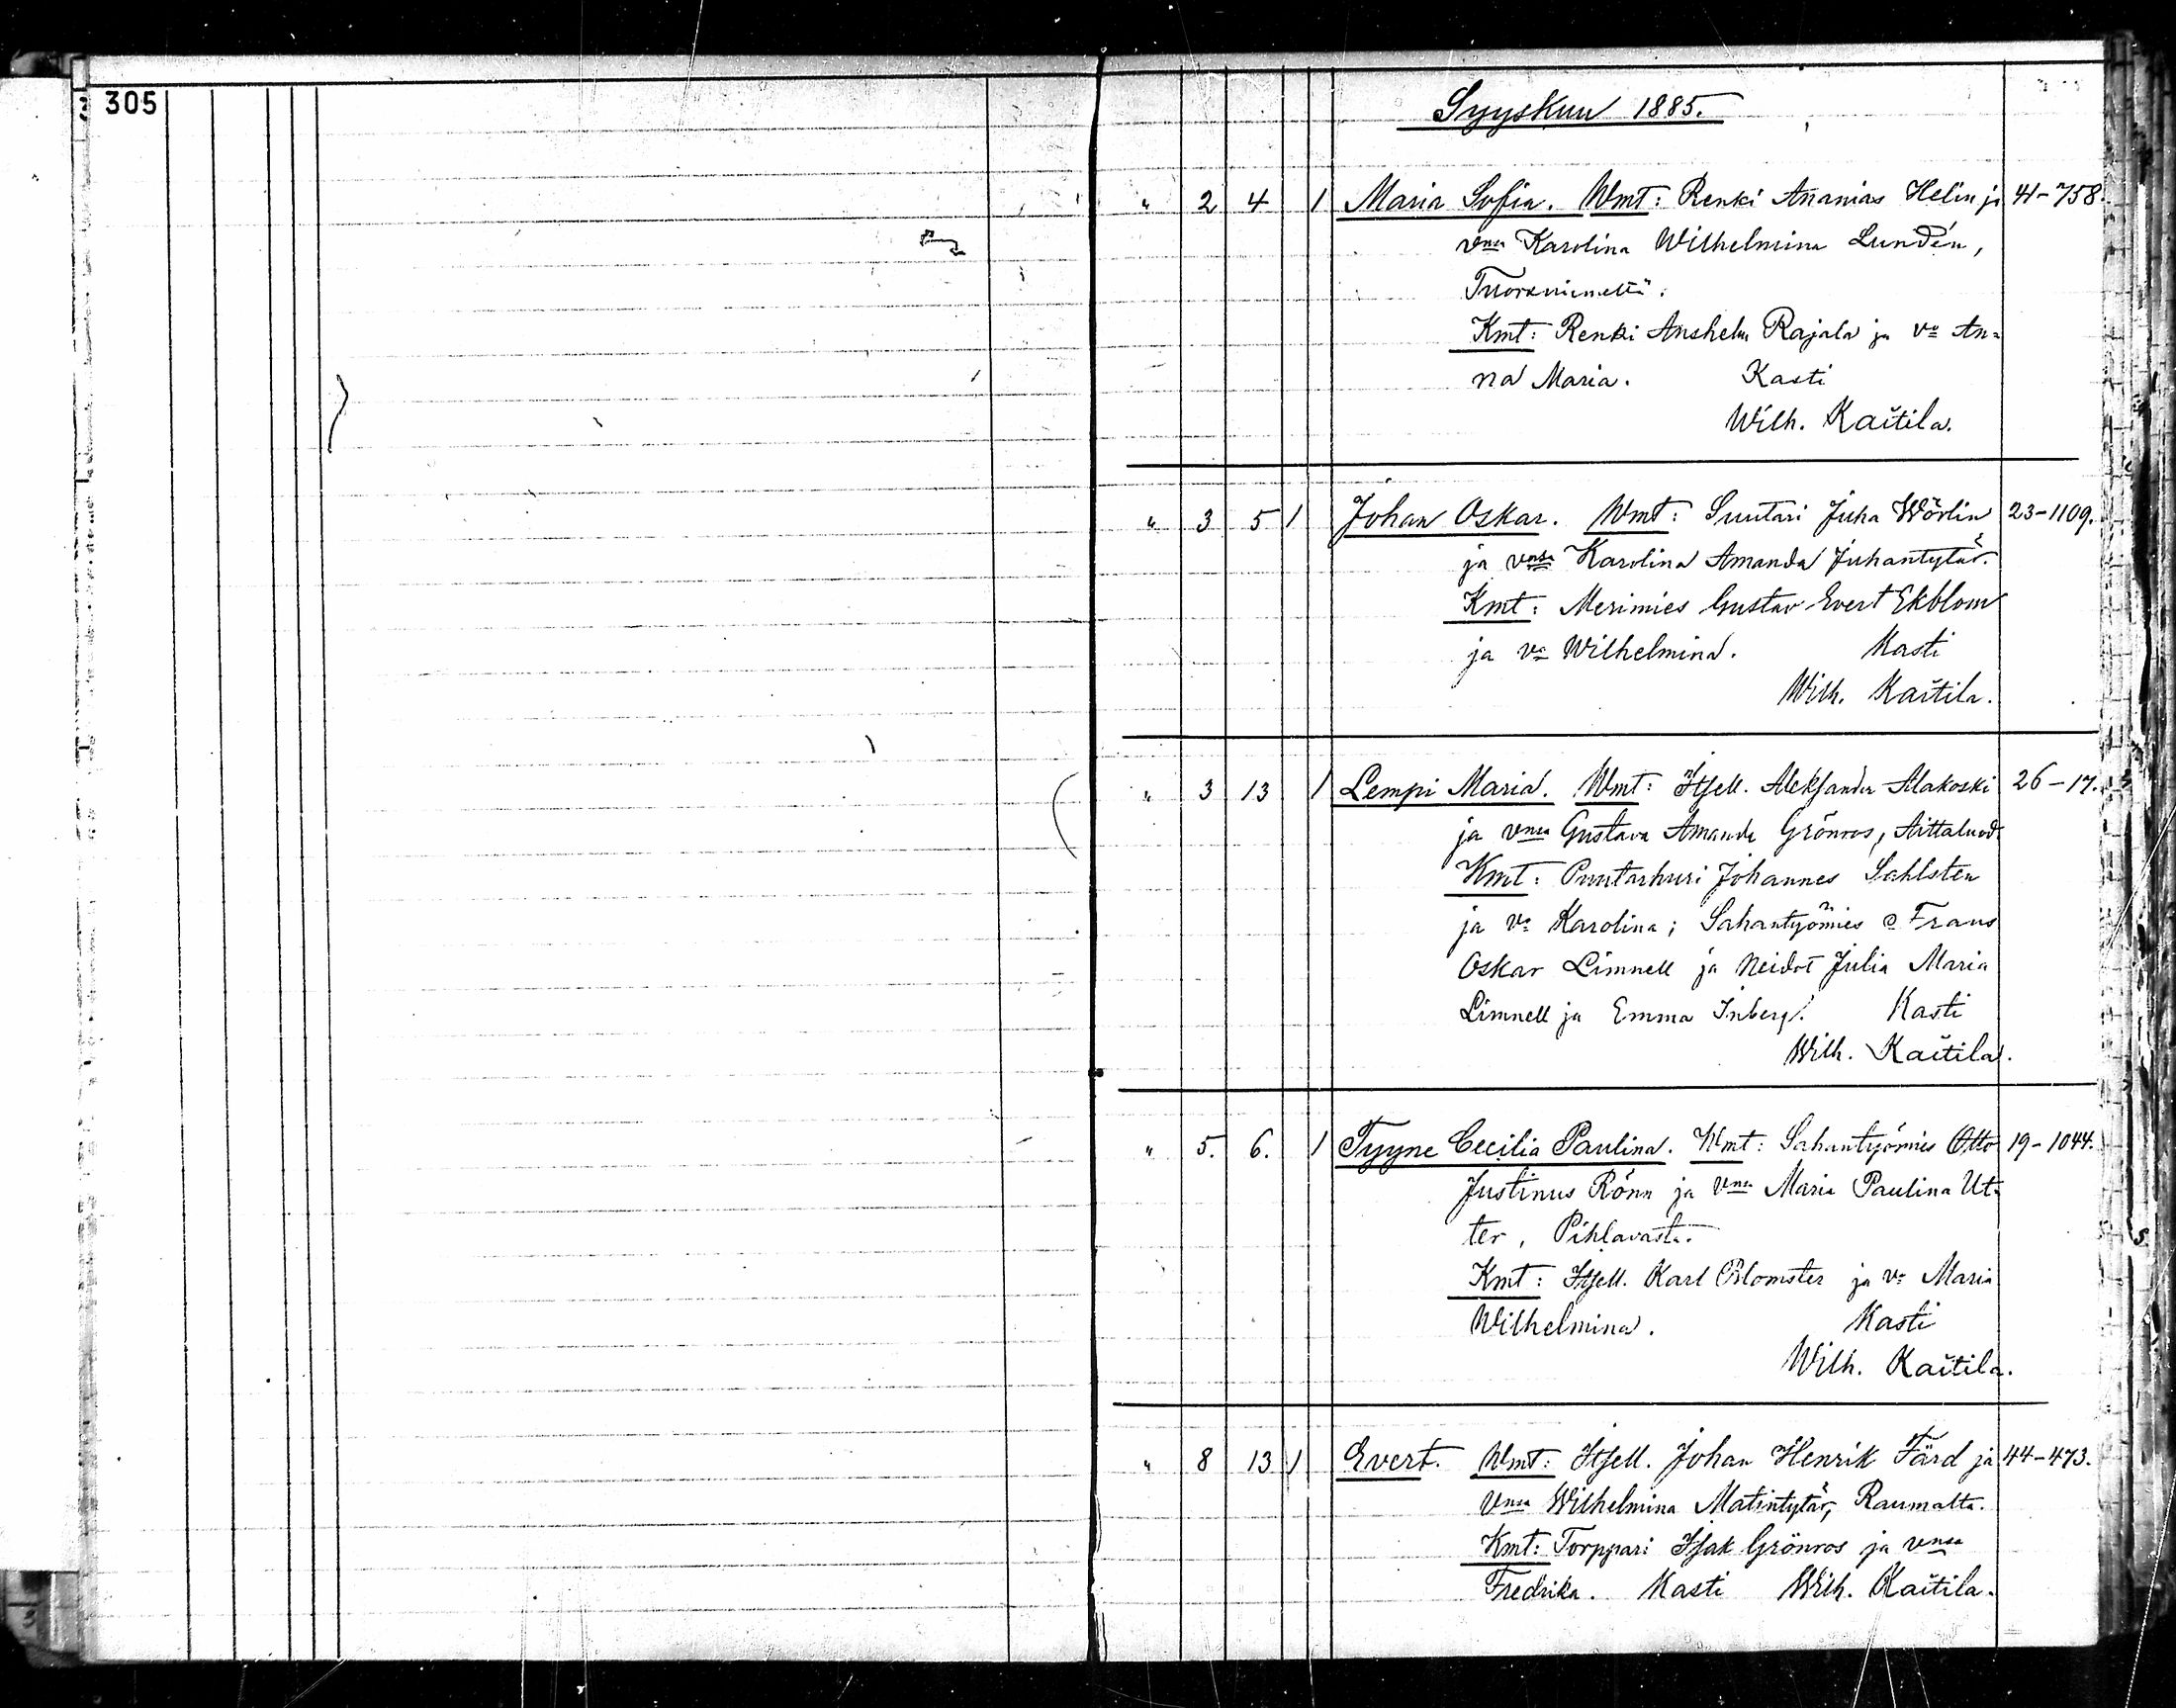 305
Syyskuu 1885.
" 2 4 1 Maria Sofia. Wmt: Renki Ananias Helin ja 41-758.
vnsa Karolina Wilhelmina Lundén,
Tuorsniemeltä.
Kmt: Renki Anshelm Rajala ja va An=
na Maria. Kasti
Wilh. Kaitila.
" 3 5 1 Johan Oskar. Wmt: Suutari Juha Wörlin 23-1109.
ja vnsa Karolina Amanda Juhantytär.
Kmt: Merimies Gustav Evert Ekblom
ja va Wilhelmina. Kasti
Wilh. Kaitila.
" 3 13 1 Lempi Maria. Wmt: Itsell. Aleksander Alakoski 26-17.
ja vnsa Gustava Amanda Grönroos, Aittaluod.
Kmt: Puutarhuri Johannes Sahlsten
ja va Karolina; Sahantyömies Frans
Oskar Limnell ja Neidot Julia Maria
Limnell ja Emma Inberg. Kasti
Wilh. Kaitila.
" 5. 6. 1 Tyyne Cecilia Paulina. Wmt: Sahantyömies Otto 19-1044.
Justinus Rönn ja vnsa Maria Paulina Ut-
ter, Pihlavasta.
Kmt: Itsell. Karl Blomster ja va Maria
Wilhelmina. Kasti
Wilh. Kaitila.
" 8 13 1 Evert. Wmt: Itsell. Johan Henrik Färd ja 44-473.
vnsa Wilhelmina Matintytär, Raumalta.
Kmt: Torppari Isak Grönroos ja vnsa
Fredrika. Kasti Wilh. Kaitila.